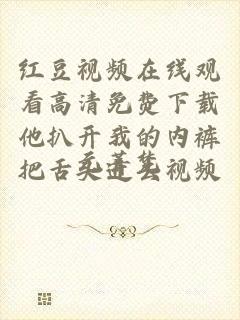 红豆视频在线观
看高清免费下载
他扒开我的内裤
把舌头进去视频